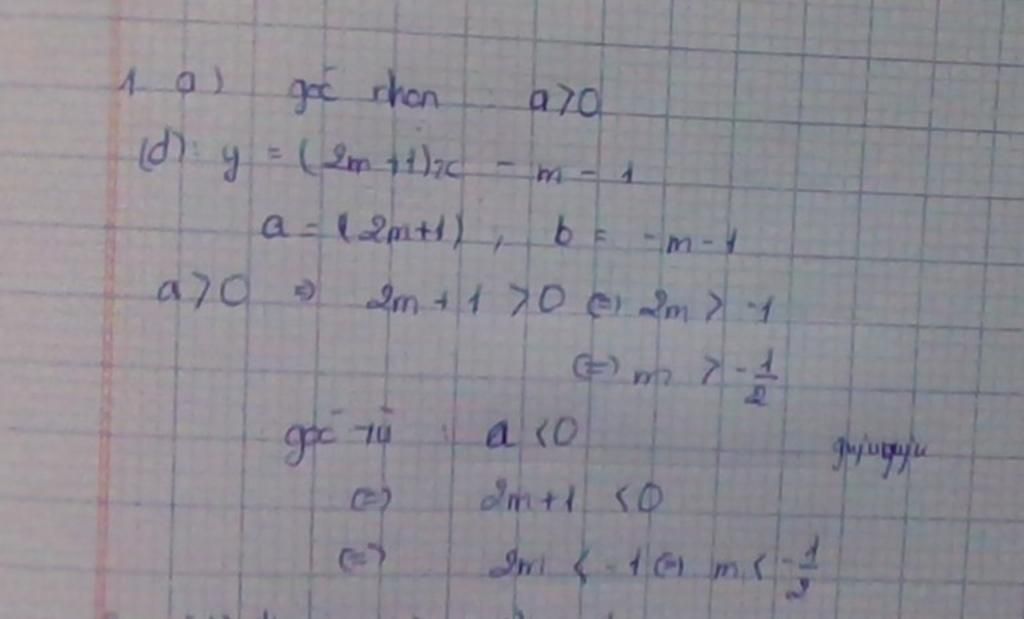 1. a) góc nhọn : a > 0
(d): y = (2m + 1)x - m - 1
a = (2m+1), b = -m-1
a > 0 => 2m + 1 > 0 <=> 2m > -1
<=> m > -1/2
góc tù : a < 0
<=> 2m+1 < 0
<=> 2m < -1 <=> m < -1/2